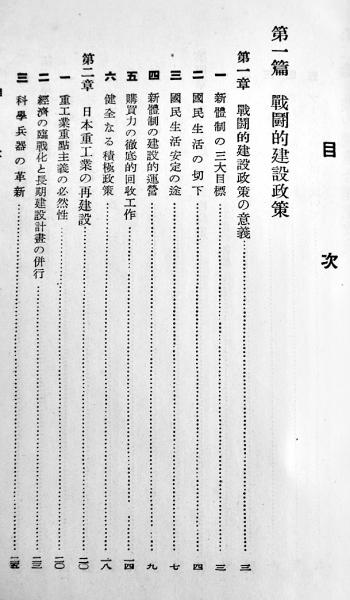 目次
第一篇 戰鬪的建設政策
第一章 戰鬪的建設政策の意義…三
一 新體制の三大目標…三
二 國民生活の切下…四
三 國民生活安定の途…七
四 新體制の建設的運營…九
五 購買力の徹底的回收工作…一四
六 健全なる積極政策…一八
第二章 日本重工業の再建設…二〇
一 重工業重點主義の必然性…二〇
二 經濟の臨戰化と長期建設計畫の併行…二三
三 科學兵器の革新…二五